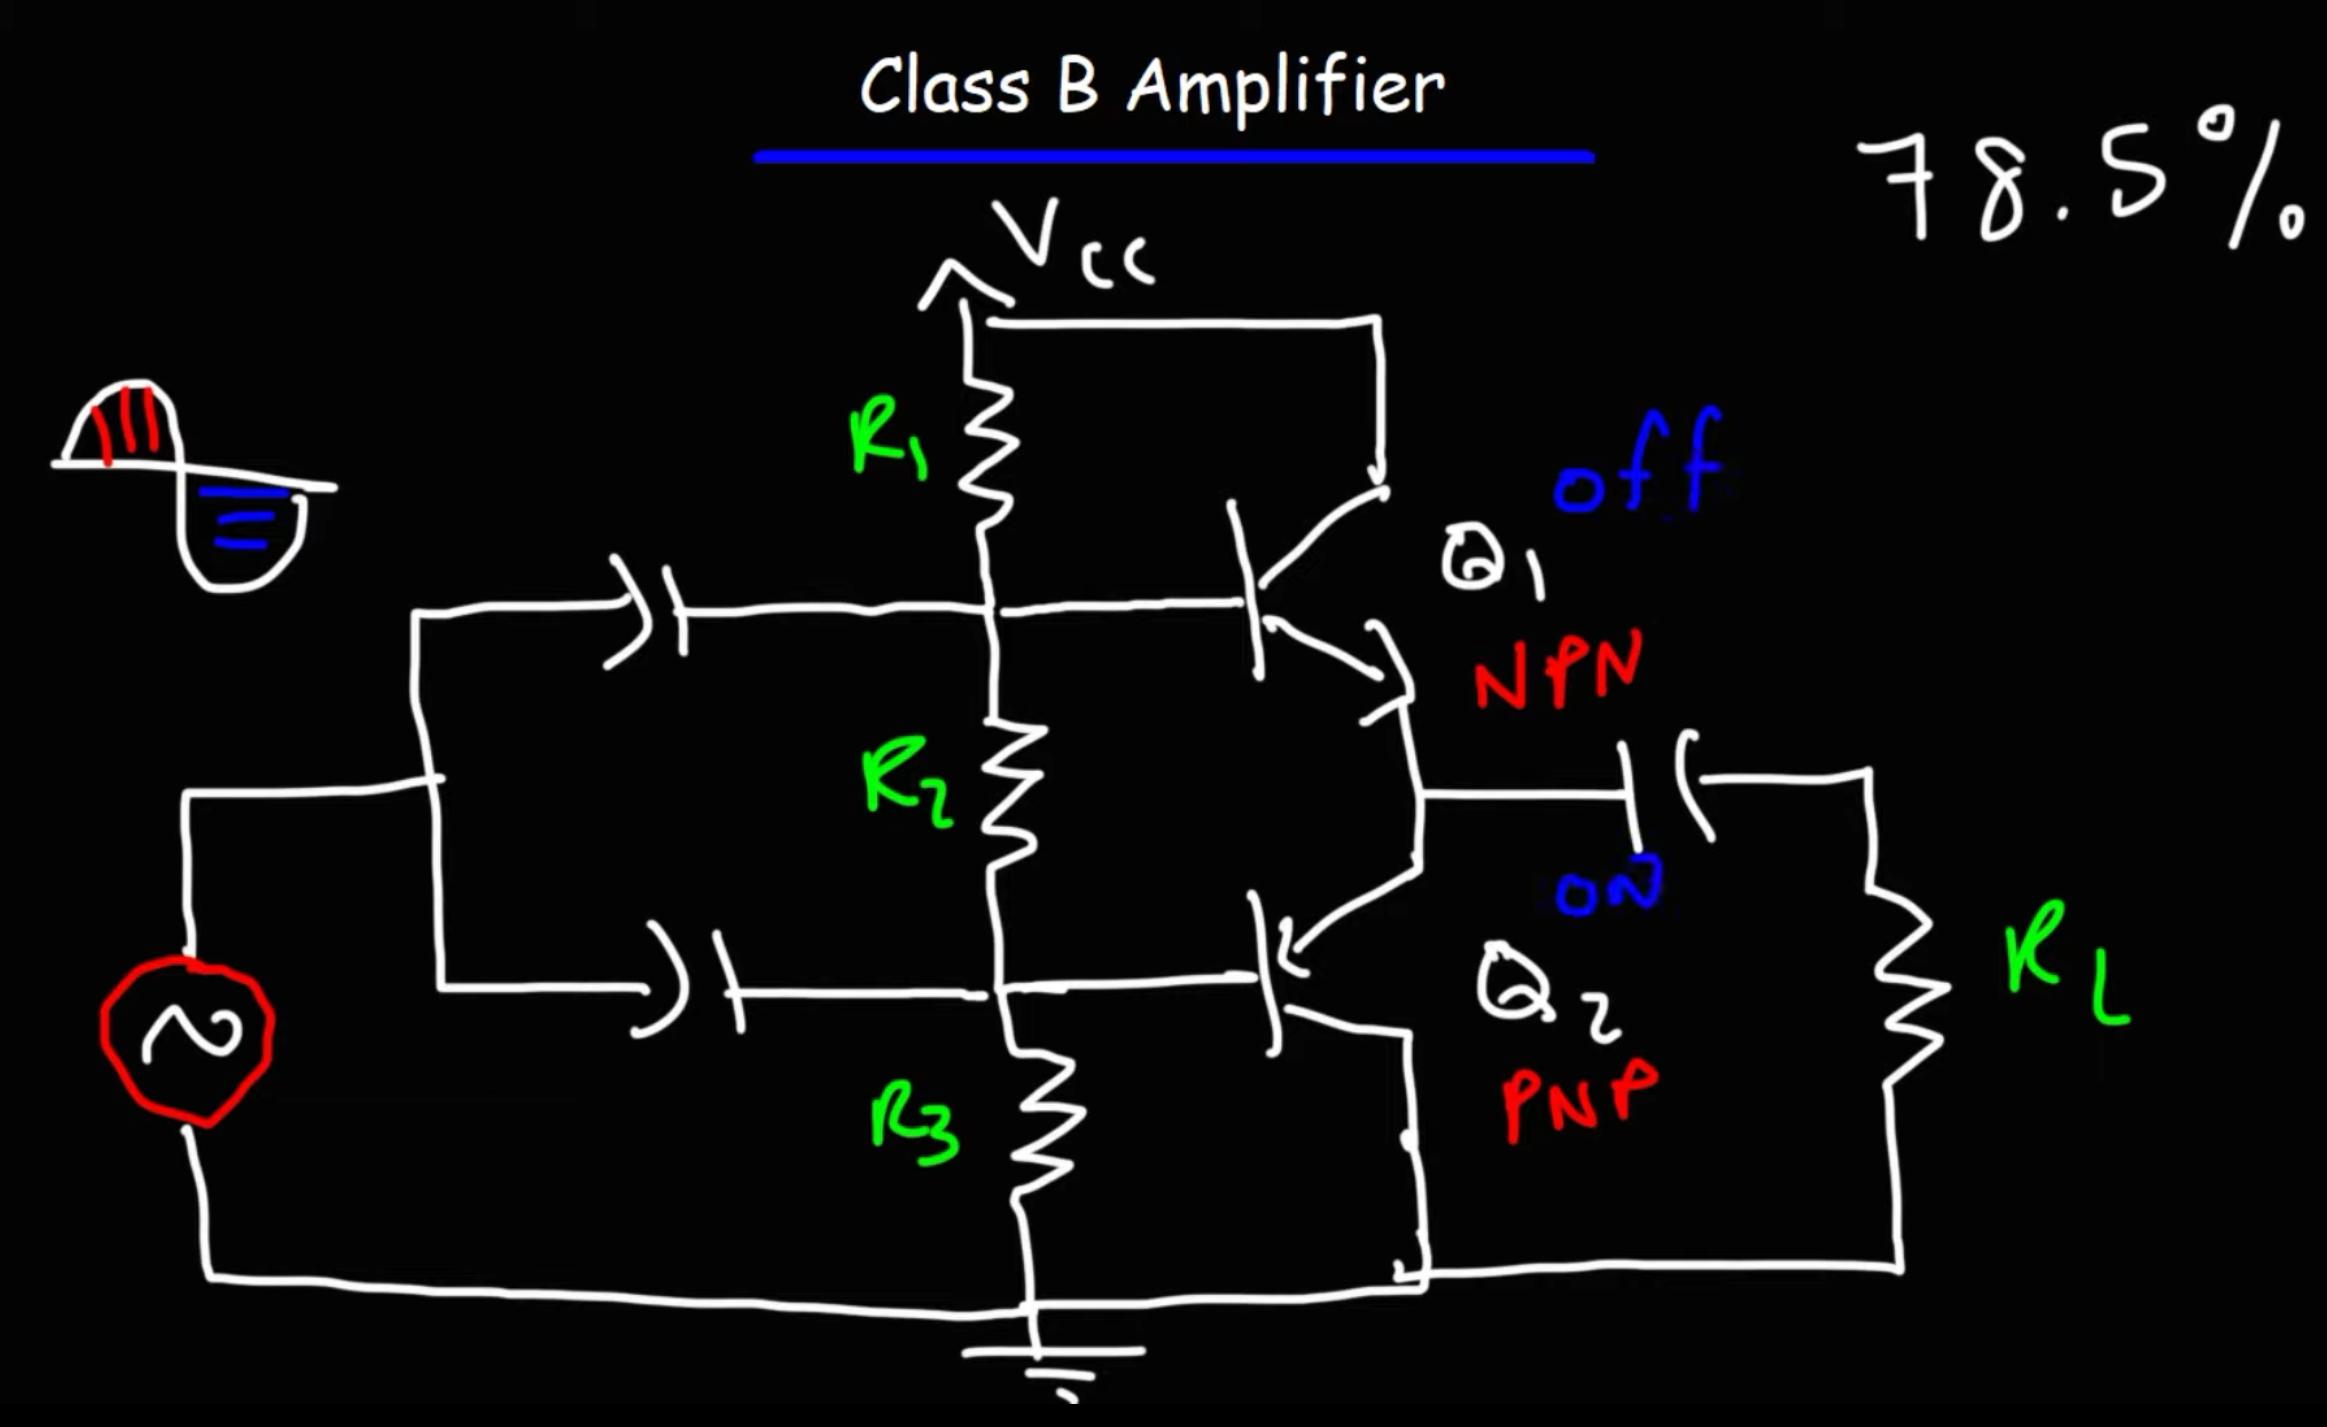 Class B Amplifier
78.5%
Vcc
R1
off
Q1
NPN
R2
ON
Q2
RL
PNP
R3